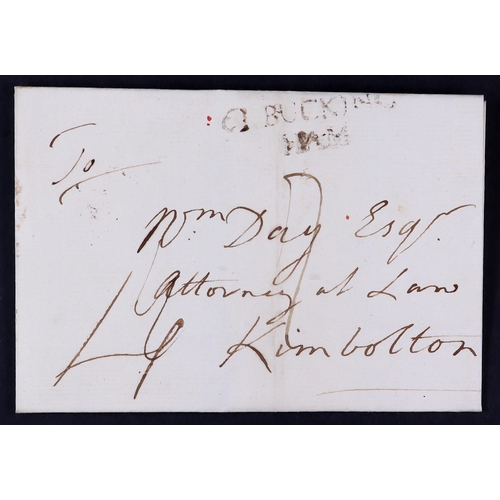 BUCKING
HAM
To
Wm Day Esqr
Attorney at Law
Kimbolton